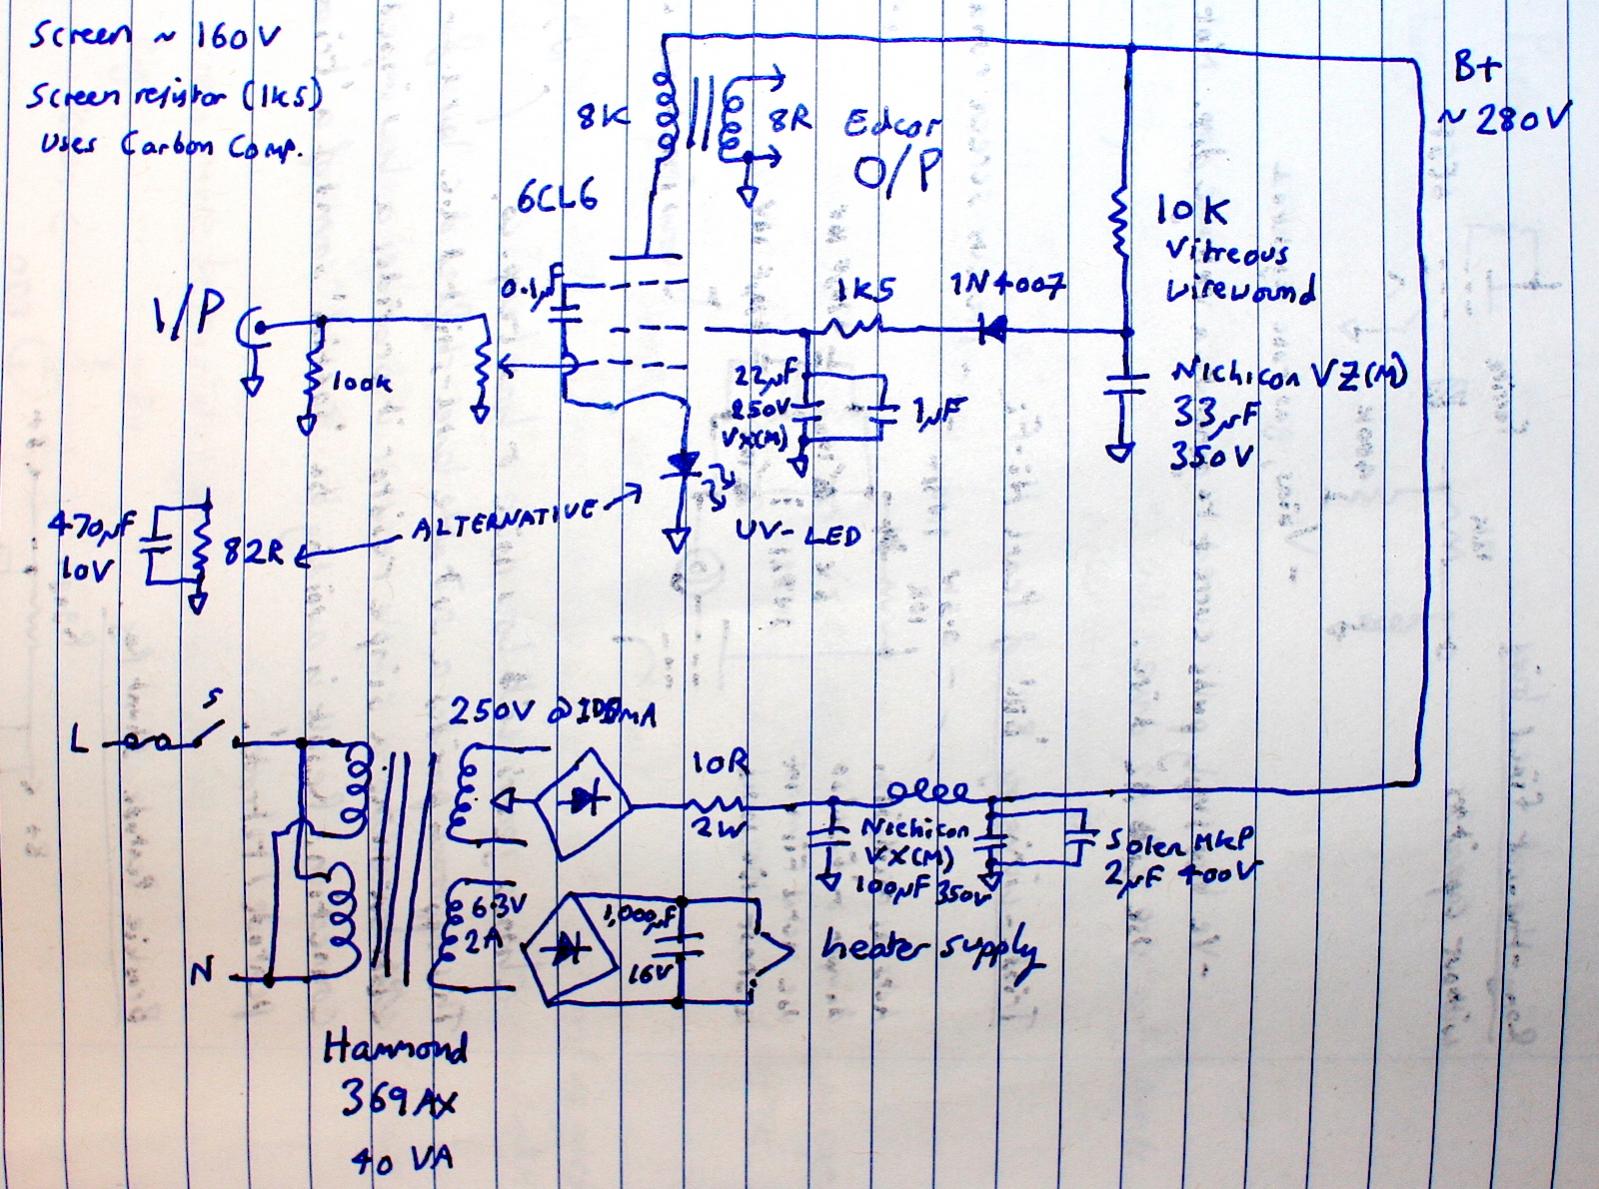 Screen ~ 160V
Screen resistor (1k5)
Uses Carbon Comp.
B+
~ 280V
8K
8R
Edcor
O/P
6CL6
10K
Vitreous
wirewound
0.1µF
1K5
1N4007
I/P
100k
22µF
250V
VX(M)
1µF
Nichicon VZ(M)
33µF
350V
470µF
10V
82R
ALTERNATIVE
UV-LED
S
L
250V @ mA
10R
2W
Nichicon
VX(M)
100µF 350V
Solen MKP
2µF 400V
6.3V
2A
1,000µF
16V
heater supply
N
Hammond
369AX
40 VA